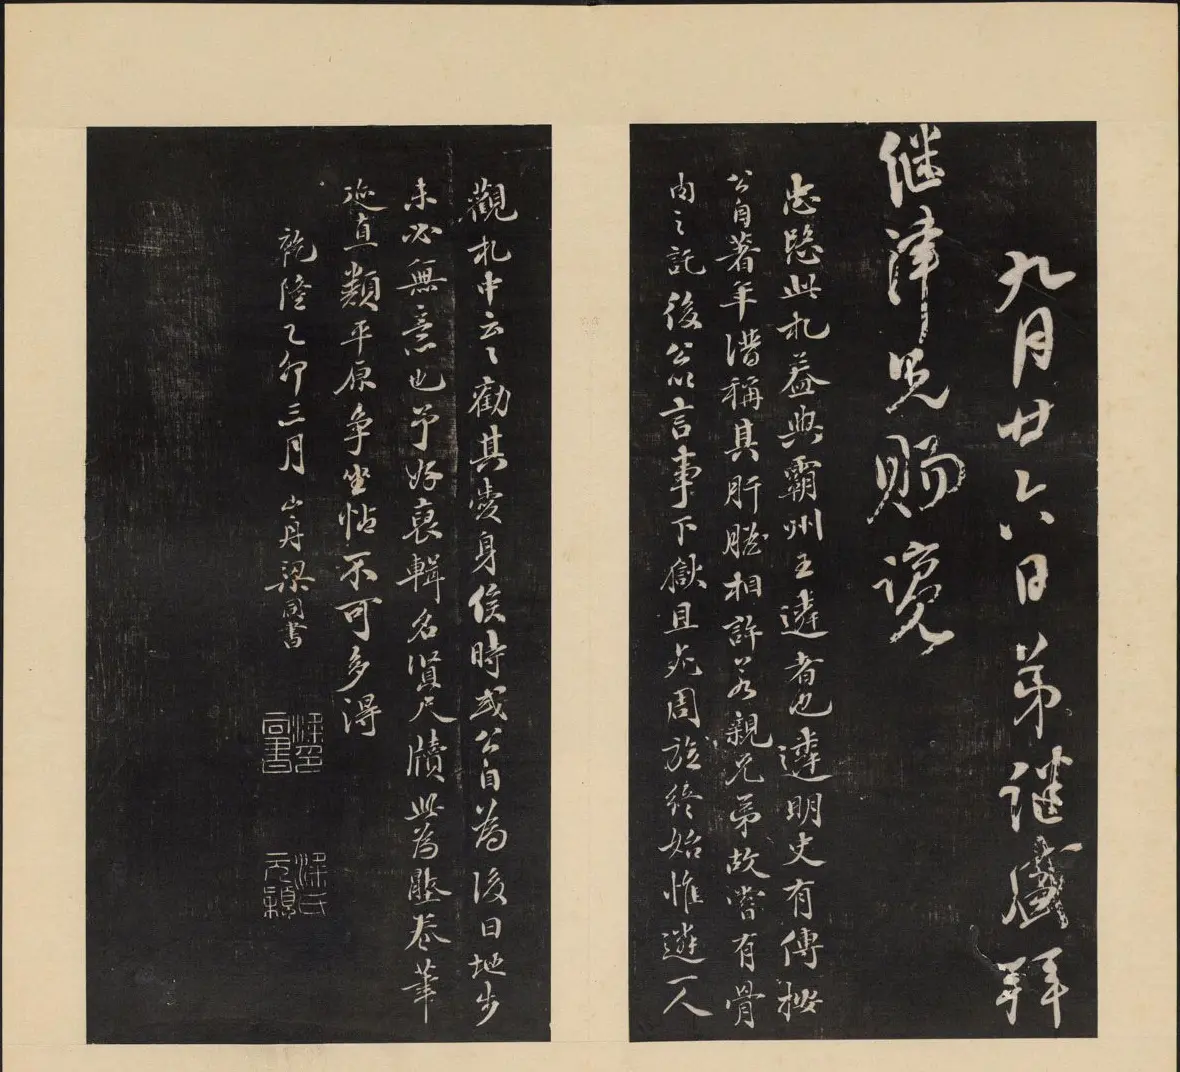 九月廿六日弟继盛拜
继津兄賜覽
忠愍此札蓋與霸州王遴者也遴明史有傳按
公自著年譜稱其肝膽相許若親兄弟故嘗有骨
肉之託後公以言事下獄且死周旋終始惟遴一人
觀札中云々勸其愛身俟時或公自為後日地步
未必無意也予好裒輯名賢尺牘此為壓卷筆
迹直類平原争坐帖不可多得
乾隆乙卯三月山舟梁同書
梁同書印
梁氏元穎